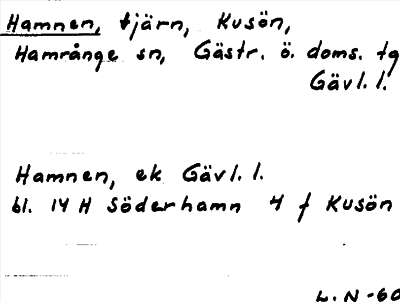 Hamnen, tjärn, Kusön,
Hamrånge sn, Gästr. ö. doms. tg
Gävl. l.
Hamnen, ek Gävl. l.
bl. 14 H Söderhamn 4 f Kusön
L. N -60